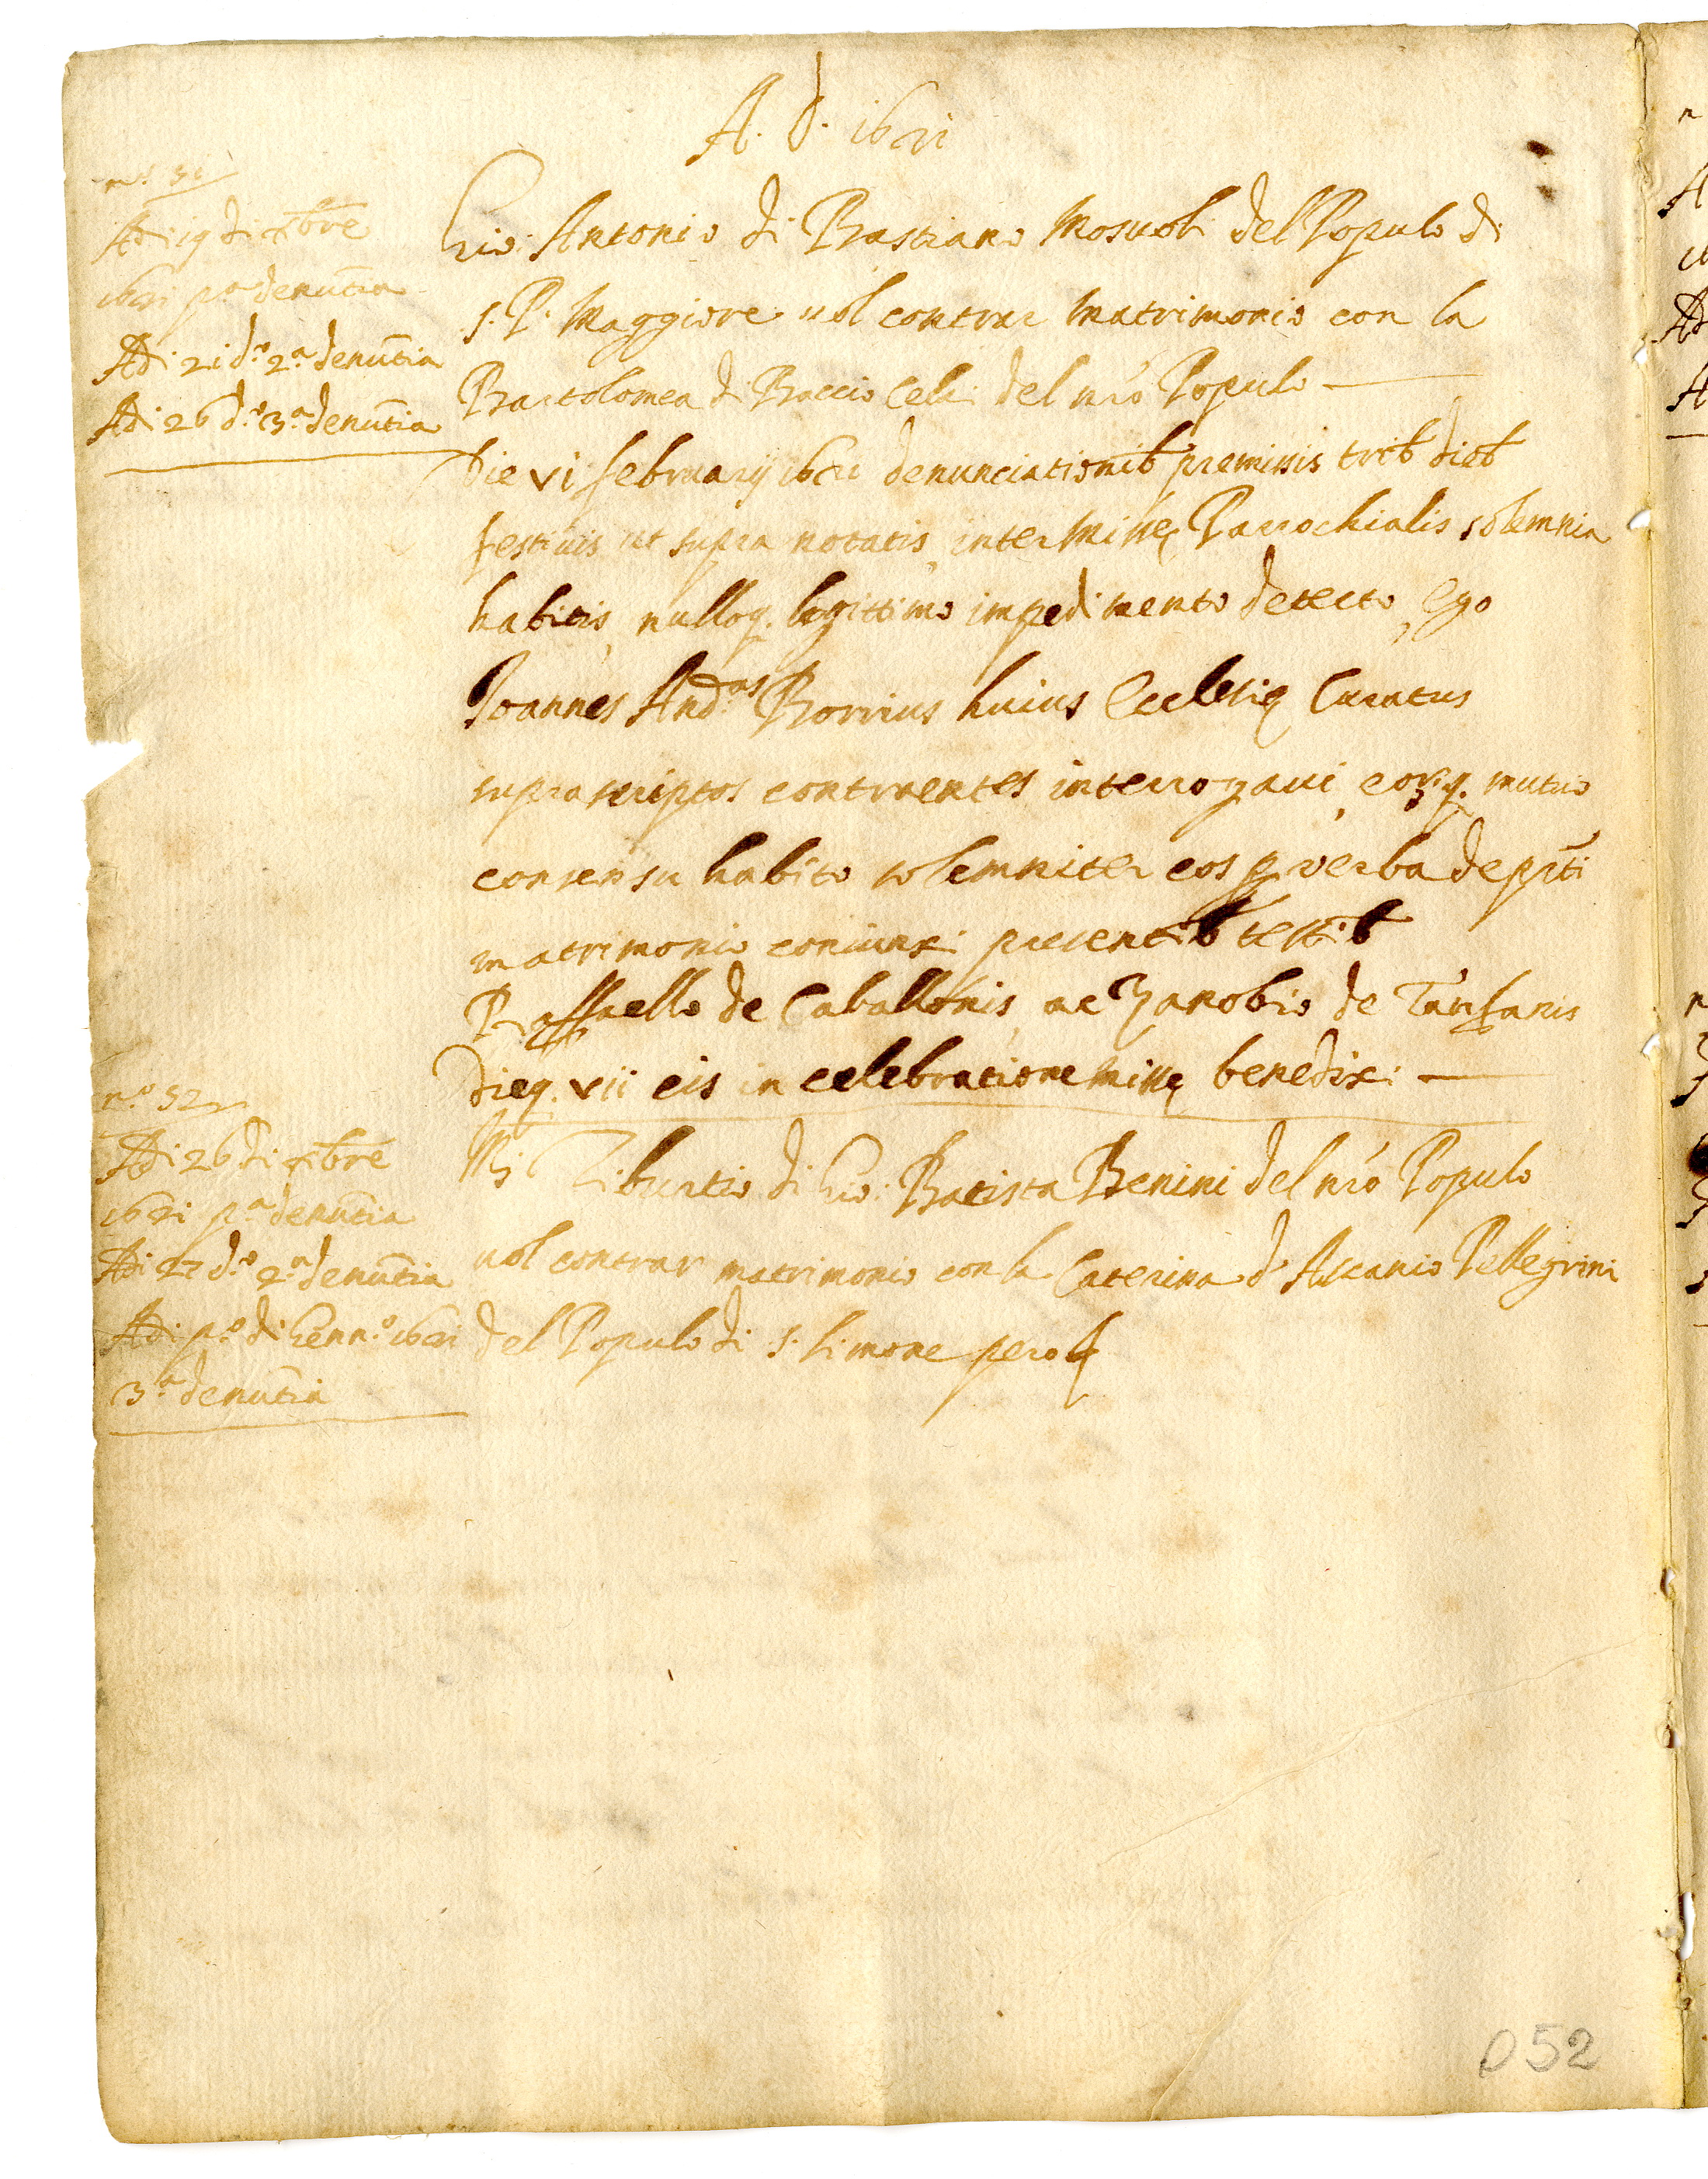 A. d. 1621
n.o 51
Adi 19 di xbre
1621 p.a denutia
Adi 21 d.o 2.a denutia
Adi 26 d.o 3.a denutia
Gio: Antonio di Bastiano del Populo di
S. P. Maggiore uol contrar matrimonio con la
Bartolomea di Baccio Celi del nro Populo
Die vi februarij 1621 denunciationib premissis trib dieb
festiuis ut supra notatis, inter Missę Parrochialis solemnia
habitis, nulloq. legittimo impedimento detecto, ego
Joannes And.as Borrius huius Ecclesię Curatus
suprascriptos contraentes interrogaui, eorq. mutuo
consensu habito solemniter eos p verba de pnti
matrimonio coniunxi presentib testib
Raffaello de Caballonis, ac Zanobio de Tanfanis
Dieq. vii eis in celebratione missę benedixi
n.o 52
Adi 26 di xbre
1621 p.a denutia
Adi 27 d.o 2.a denutia
Adi p.o di Genn.o 1621
3.a denutia
Tiburtio di Gio: Batista Benini del nro Populo
uol contrar matrimonio con la Caterina d'Ascanio Pellegrini
del Populo di S. Simone pero
052